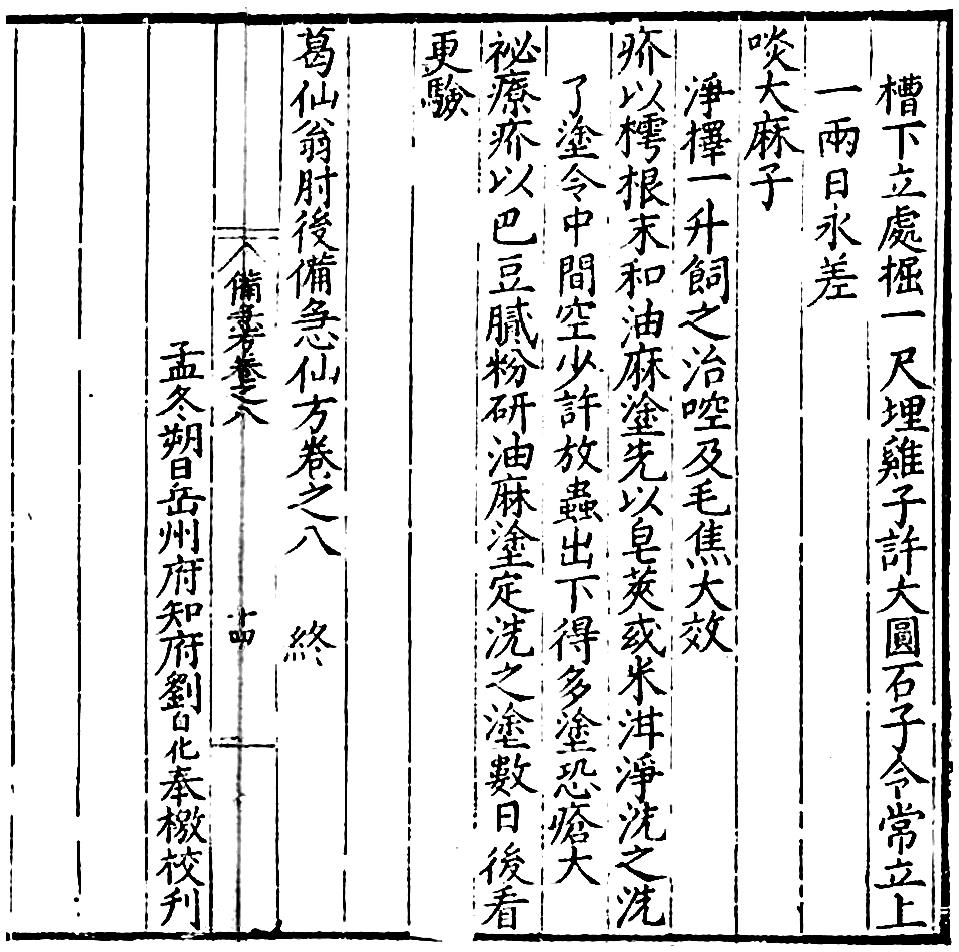 槽下立處掘一尺埋雞子許大圓石子令常立上
一兩日永差
啖大麻子
淨擇一升飼之治啌及毛焦大效
疥以樗根末和油麻塗先以皂莢或米泔淨洗之洗
了塗令中間空少許放蟲出下得多塗恐瘡大
祕療疥以巴豆膩粉研油麻塗定洗之塗數日後看
更驗
葛仙翁肘後備急仙方卷之八　終
備急方卷之八　十四
孟冬朔日岳州府知府劉自化奉檄校刊